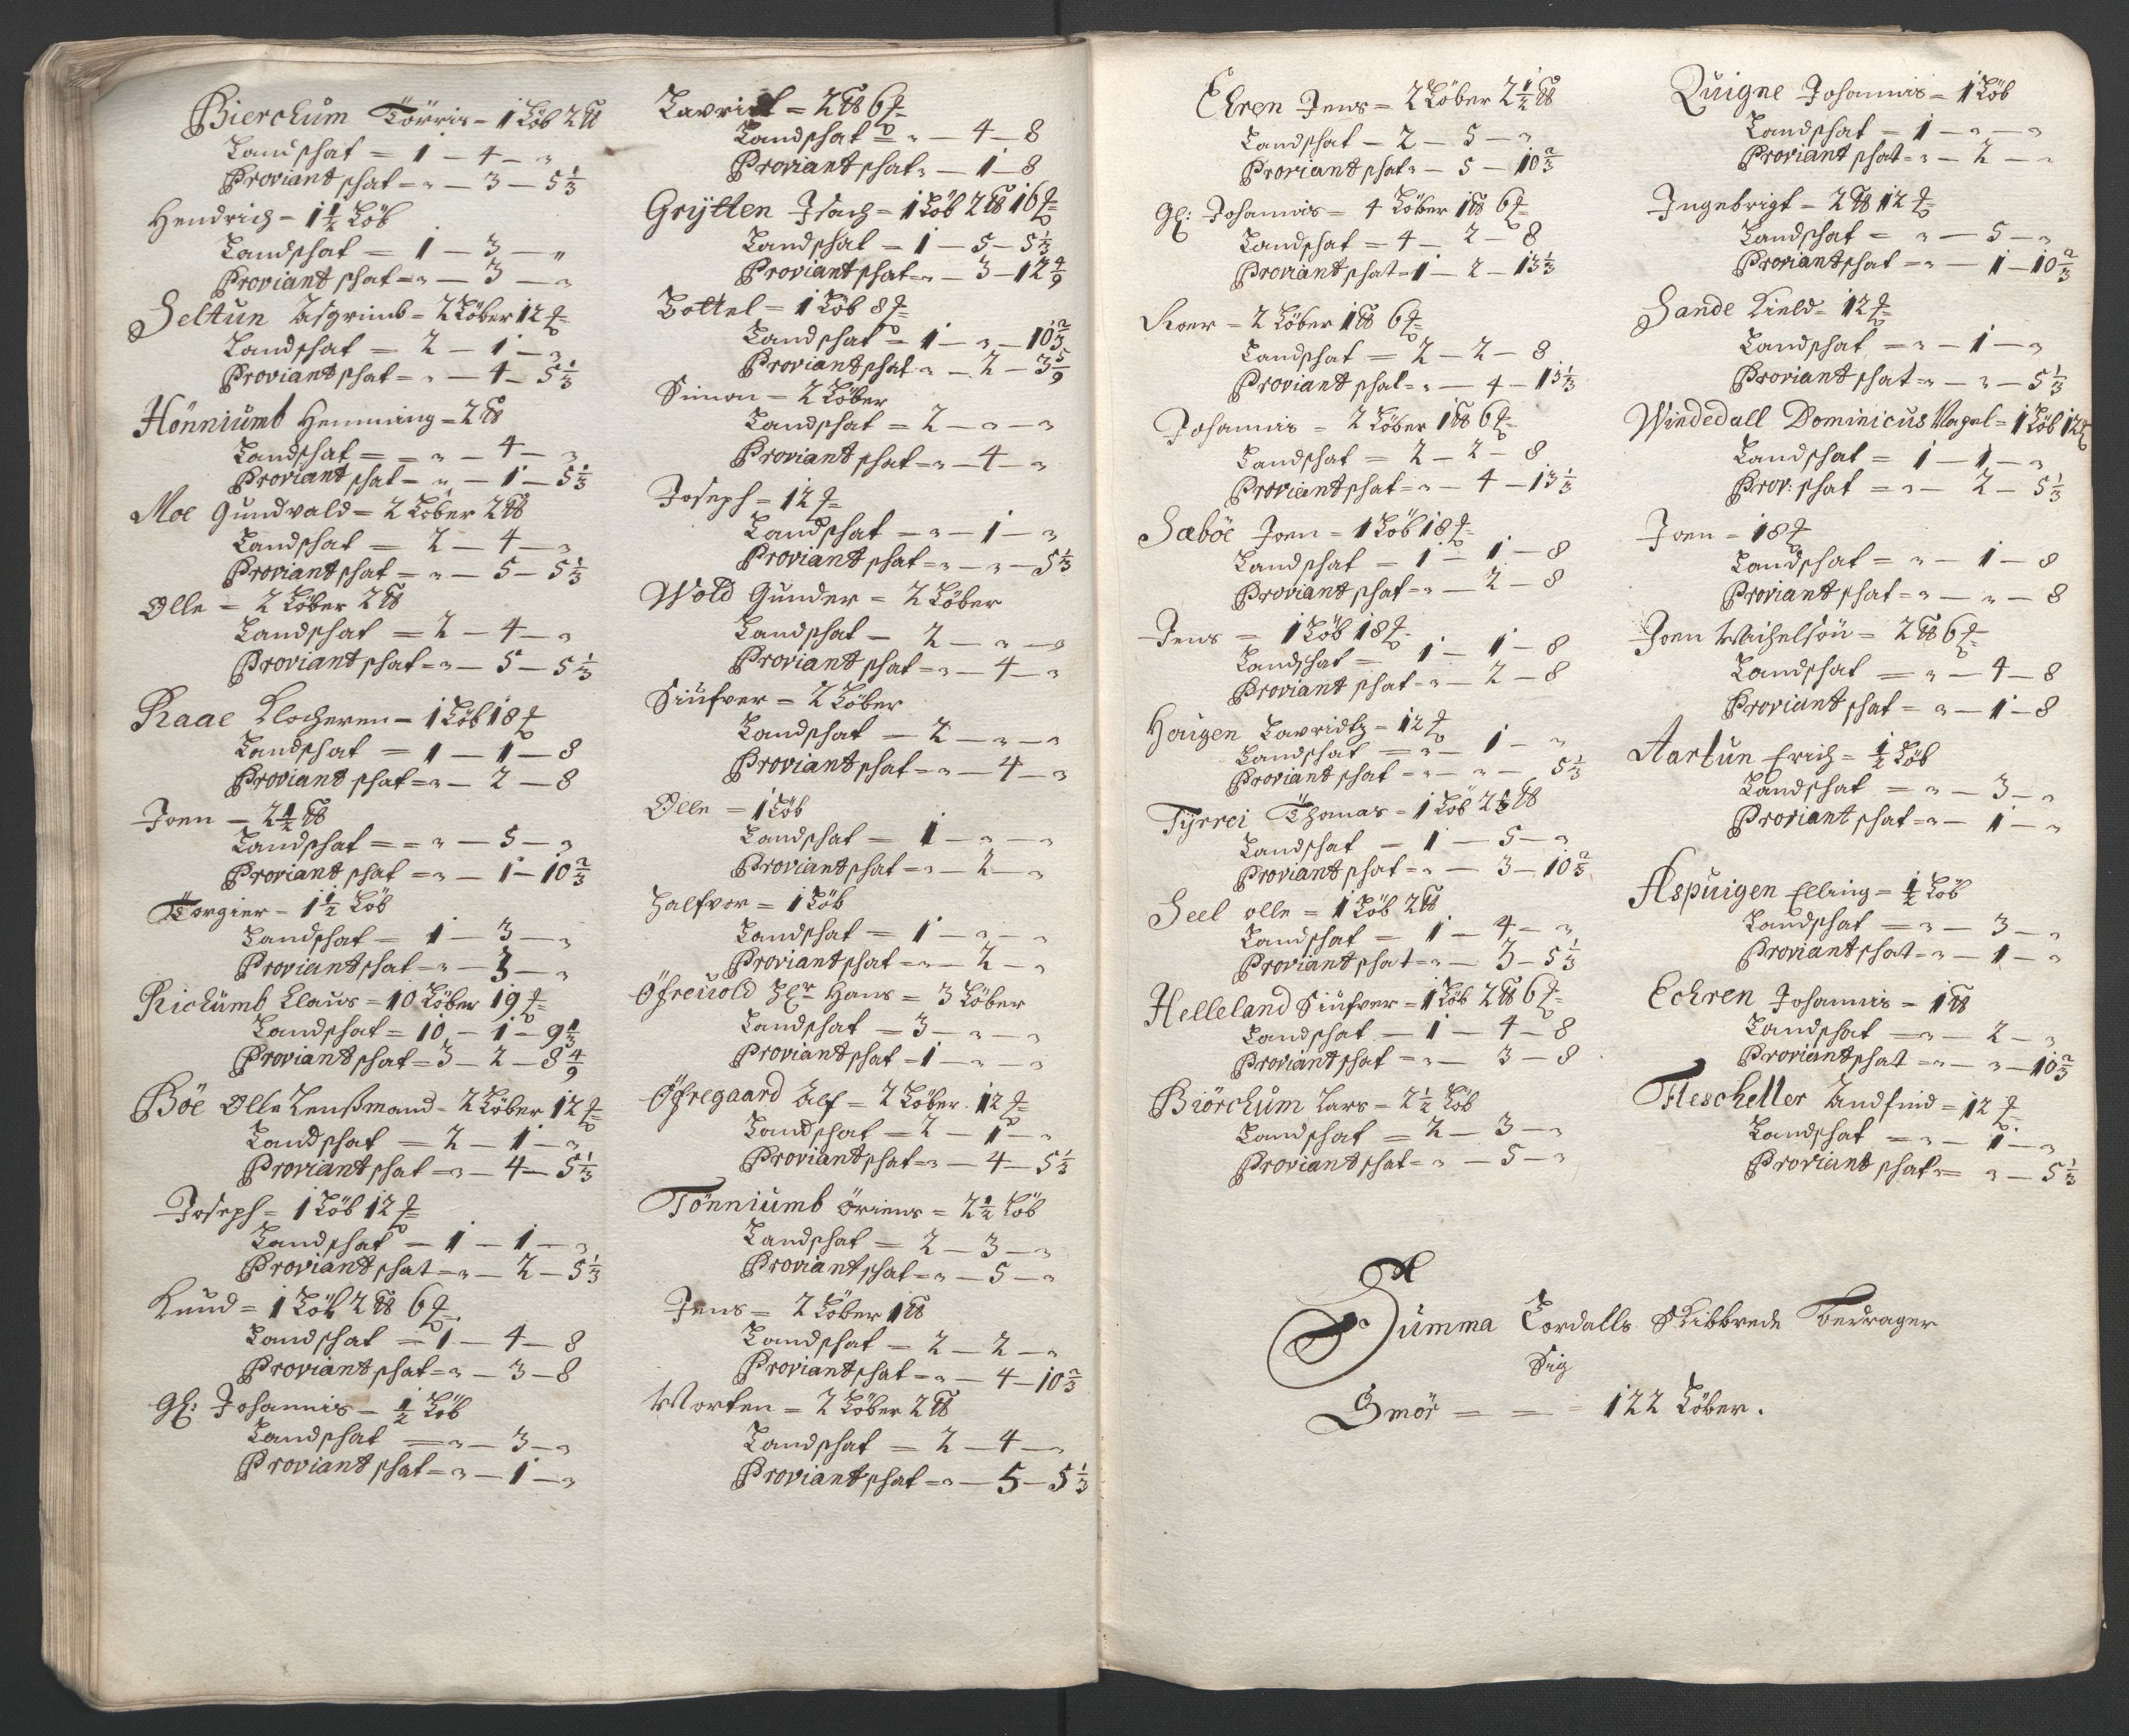 Bierchum Törris - 1 Löb 2 ℔
Landschat = 1 - 4 - "
Proviant schat = " - 3 - 5 1/3
Hendrich - 1 1/2 Löb
Landschat = 1 - 3 - "
Proviant schat = " - 3 - "
Seltun Asgrimb - 2 Löber 12 ₰
Landschat = 2 - 1 - "
Proviant schat = " - 4 - 5 1/3
Hönniumb Hemming - 2 ℔
Landschat = = " - 4 - "
Proviant schat - " - 1 - 5 1/3
Moe Gundvald = 2 Löber 2 ℔
Landschat = 2 - 4 - "
Proviant schat = " - 5 - 5 1/3
Olle = 2 Löber 2 ℔
Landschat = 2 - 4 - "
Proviant schat = " - 5 - 5 1/3
Raae Klocheren - 1 Löb 18 ₰
Landschat = 1 - 1 - 8
Proviant schat = " - 2 - 8
Joen - 2 1/2 ℔
Landschat = = " - 5 - "
Proviant schat = " - 1 - 10 2/3
Torgier - 1 1/2 Löb
Landschat = 1 - 3 - "
Proviant schat = " - 3 - "
Richumb Claus = 10 Löber 19 ₰
Landschat = 10 - 1 - 9 1/3
Proviant schat = 3 - 2 - 8 4/9
Böe Olle Lenßmand - 2 Löber 12 ₰
Landschat = 2 - 1 - "
Proviant schat = " - 4 - 5 1/3
Joseph = 1 Löb 12 ₰
Landschat - 1 - 1 - "
Proviant schat = " - 2 - 5 1/3
Knud = 1 Löb 2 ℔ 6 ₰
Landschat = 1 - 4 - 8
Proviant schat = " - 3 - 8
Gl: Johannis - 1/2 Löb
Landschat = " - 3 - "
Proviant schat = " - 1 - "
Lavri = 2 ℔ 6 ₰
Landschat = " - 4 - 8
Proviant schat " - 1 - 8
Grÿtten Isach = 1 Löb 2 ℔ 16 ₰
Landschat = 1 - 5 - 5 1/3
Proviant schat = " - 3 - 12 4/9
Bottel = 1 Löb 8 ₰
Landschat = 1 - " - 10 2/3
Proviant schat " - 2 - 3 5/9
Simon - 2 Löber
Landschat = 2 - " - "
Proviant schat = " - 4 - "
Joseph = 12 ₰
Landschat = " - 1 - "
Proviant schat = " - " - 5 1/3
Wold Gunder = 2 Löber
Landschat - 2 - " - "
Proviant schat = " - 4 - "
Siufver - 2 Löber
Landschat - 2 - " - "
Proviant schat = " - 4 - "
Olle = 1 Löb
Landschat = 1 - " - "
Proviant schat = " - 2 - "
Halfvor = 1 Löb
Landschat = 1 - " - "
Proviant schat = " - 2 - "
Öfreuold Hr Hans = 3 Löber
Landschat = 3 - " - "
Proviant schat - 1 - " - "
Öfregaard Alf = 2 Löber 12 ₰
Landschat = 2 - 1 - "
Proviant schat = " - 4 - 5 1/3
Tönniumb Öriens = 2 1/2 Löb
Landschat = 2 - 3 - "
Proviant schat = " - 5 - "
Jens = 2 Löber 1 ℔
Landschat = 2 - 2 - "
Proviant schat = " - 4 - 10 2/3
Morten = 2 Löber 2 ℔
Landschat = 2 - 4 - "
Proviant schat = " - 5 - 5 1/3
Ehren Jens = 2 Löber 2 1/2 ℔
Landschat - 2 - 5 - "
Proviant schat " - 5 - 10 2/3
Gl: Johannis = 4 Löber 1 ℔ 6 ₰
Landschat = 4 - 2 - 8
Proviant schat = 1 - 2 - 13 1/3
Roer = 2 Löber 1 ℔ 6 ₰
Landschat = 2 - 2 - 8
Proviant schat = " - 4 - 13 1/3
Johannis = 2 Löber 1 ℔ 6 ₰
Landschat = 2 - 2 - 8
Proviant schat = " - 4 - 13 1/3
Sæböe Joen = 1 Löb 18 ₰
Landschat = 1 - 1 - 8
Proviant schat = " - 2 - 8
Jens = 1 Löb 18 ₰
Landschat = 1 - 1 - 8
Proviant schat = " - 2 - 8
Haugen Lavridtz = 12 ₰
Landschat = " - 1 - "
Proviant schat = " - " - 5 1/3
Tÿrrei Thomas = 1 Löb 2 1/2 ℔
Landschat = 1 - 5 - "
Proviant schat = " - 3 - 10 2/3
Seel olle = 1 Löb 2 ℔
Landschat = 1 - 4 - "
Proviant schat = " - 3 - 5 1/3
Helleland Siufver = 1 Löb 2 ℔ 6 ₰
Landschat - 1 - 4 - 8
Proviant schat = " - 3 - 8
Biörchum Lars - 2 1/2 Löb
Landschat = 2 - 3 - "
Proviant schat = " - 5 - "
Quigne Johannis = 1 Löb
Landschat = 1 - " - "
Proviant schat = " - 2 - "
Ingebrigt - 2 ℔ 12 ₰
Landschat = " - 5 - "
Proviant schat = " - 1 - 10 2/3
Sande Kield = 12 ₰
Landschat = " - 1 - "
Proviant schat = " - " - 5 1/3
Windedall Dominicus Nagel = 1 Löb 12 ₰
Landschat = 1 - 1 - "
Prov: schat = " - 2 - 5 1/3
Joen = 18 ₰
Landschat = " - 1 - 8
Proviant schat = " - " - 8
Joen Michelsön = 2 ℔ 6 ₰
Landschat = " - 4 - 8
Proviant schat = " - 1 - 8
Aartun Erich = 1/2 Löb
Landschat = " - 3 - "
Proviant schat = " - 1 - "
Aspuigen Elling = 1/2 Löb
Landschat = " - 3 - "
Proviant schat = " - 1 - "
Echren Johannis = 1 ℔
Landschat = " - 2 - "
Proviant schat = " - " - 10 2/3
Flescheller Andfind = 12 ₰
Landschat = " - 1 - "
Proviant schat = " - 5 1/3
Summa Lordalls Skibbrede Bedrager
Sig
Smör = = = 122 Löber.